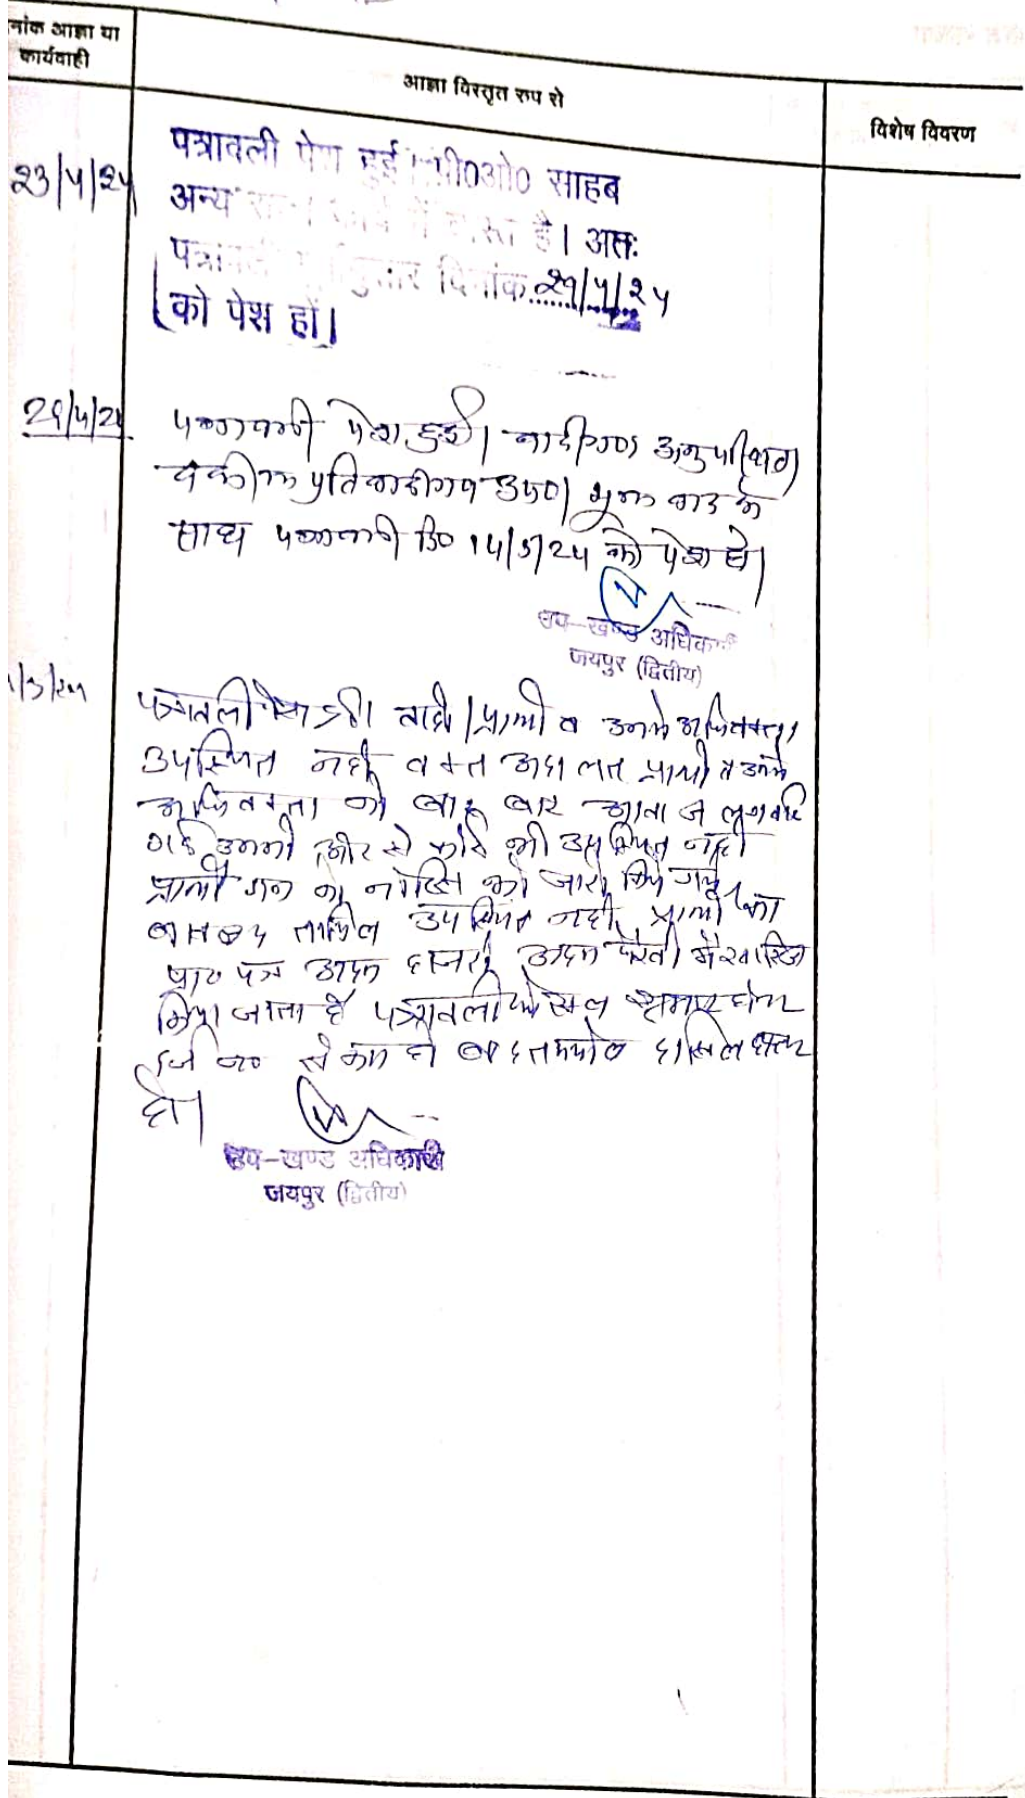 नांक आज्ञा या
कार्यवाही
आज्ञा विस्तृत रुप से
विशेष विवरण
23/4/24
पत्रावली पेश हुई। पी0ओ0 साहब
अन्य में व्यस्त है। अतः
पत्रावली दिनांक 29/4/24
को पेश हों।
29/4/24
पत्रावली पेश हुई। वादीगण अनुपस्थित
वकील प्रतिवादीगण उप0। मूल वाद के
साथ पत्रावली दि0 14/5/24 को पेश हो।
उप-खण्ड अधिकारी
जयपुर (द्वितीय)
पत्रावली पेश हुई। वादी/प्रार्थी व उनके अधिवक्ता
उपस्थित नहीं वक्त अदालत प्रार्थी व उनके
अधिवक्ता को बार बार आवाज लगवाई
गई उनकी ओर से कोई भी उपस्थित नहीं
प्रार्थी गण को नोटिस को जारी किये गये
तामिल उपस्थित नहीं, प्रार्थी का
प्रा0 पत्र अदम हाजरी अदम पैरवी में खारिज
किया जाता है पत्रावली फैसल शुमार होकर
दर्ज न0 से कम हो बाद तकमील दाखिल दफ्तर
हो।
उप-खण्ड अधिकारी
जयपुर (द्वितीय)